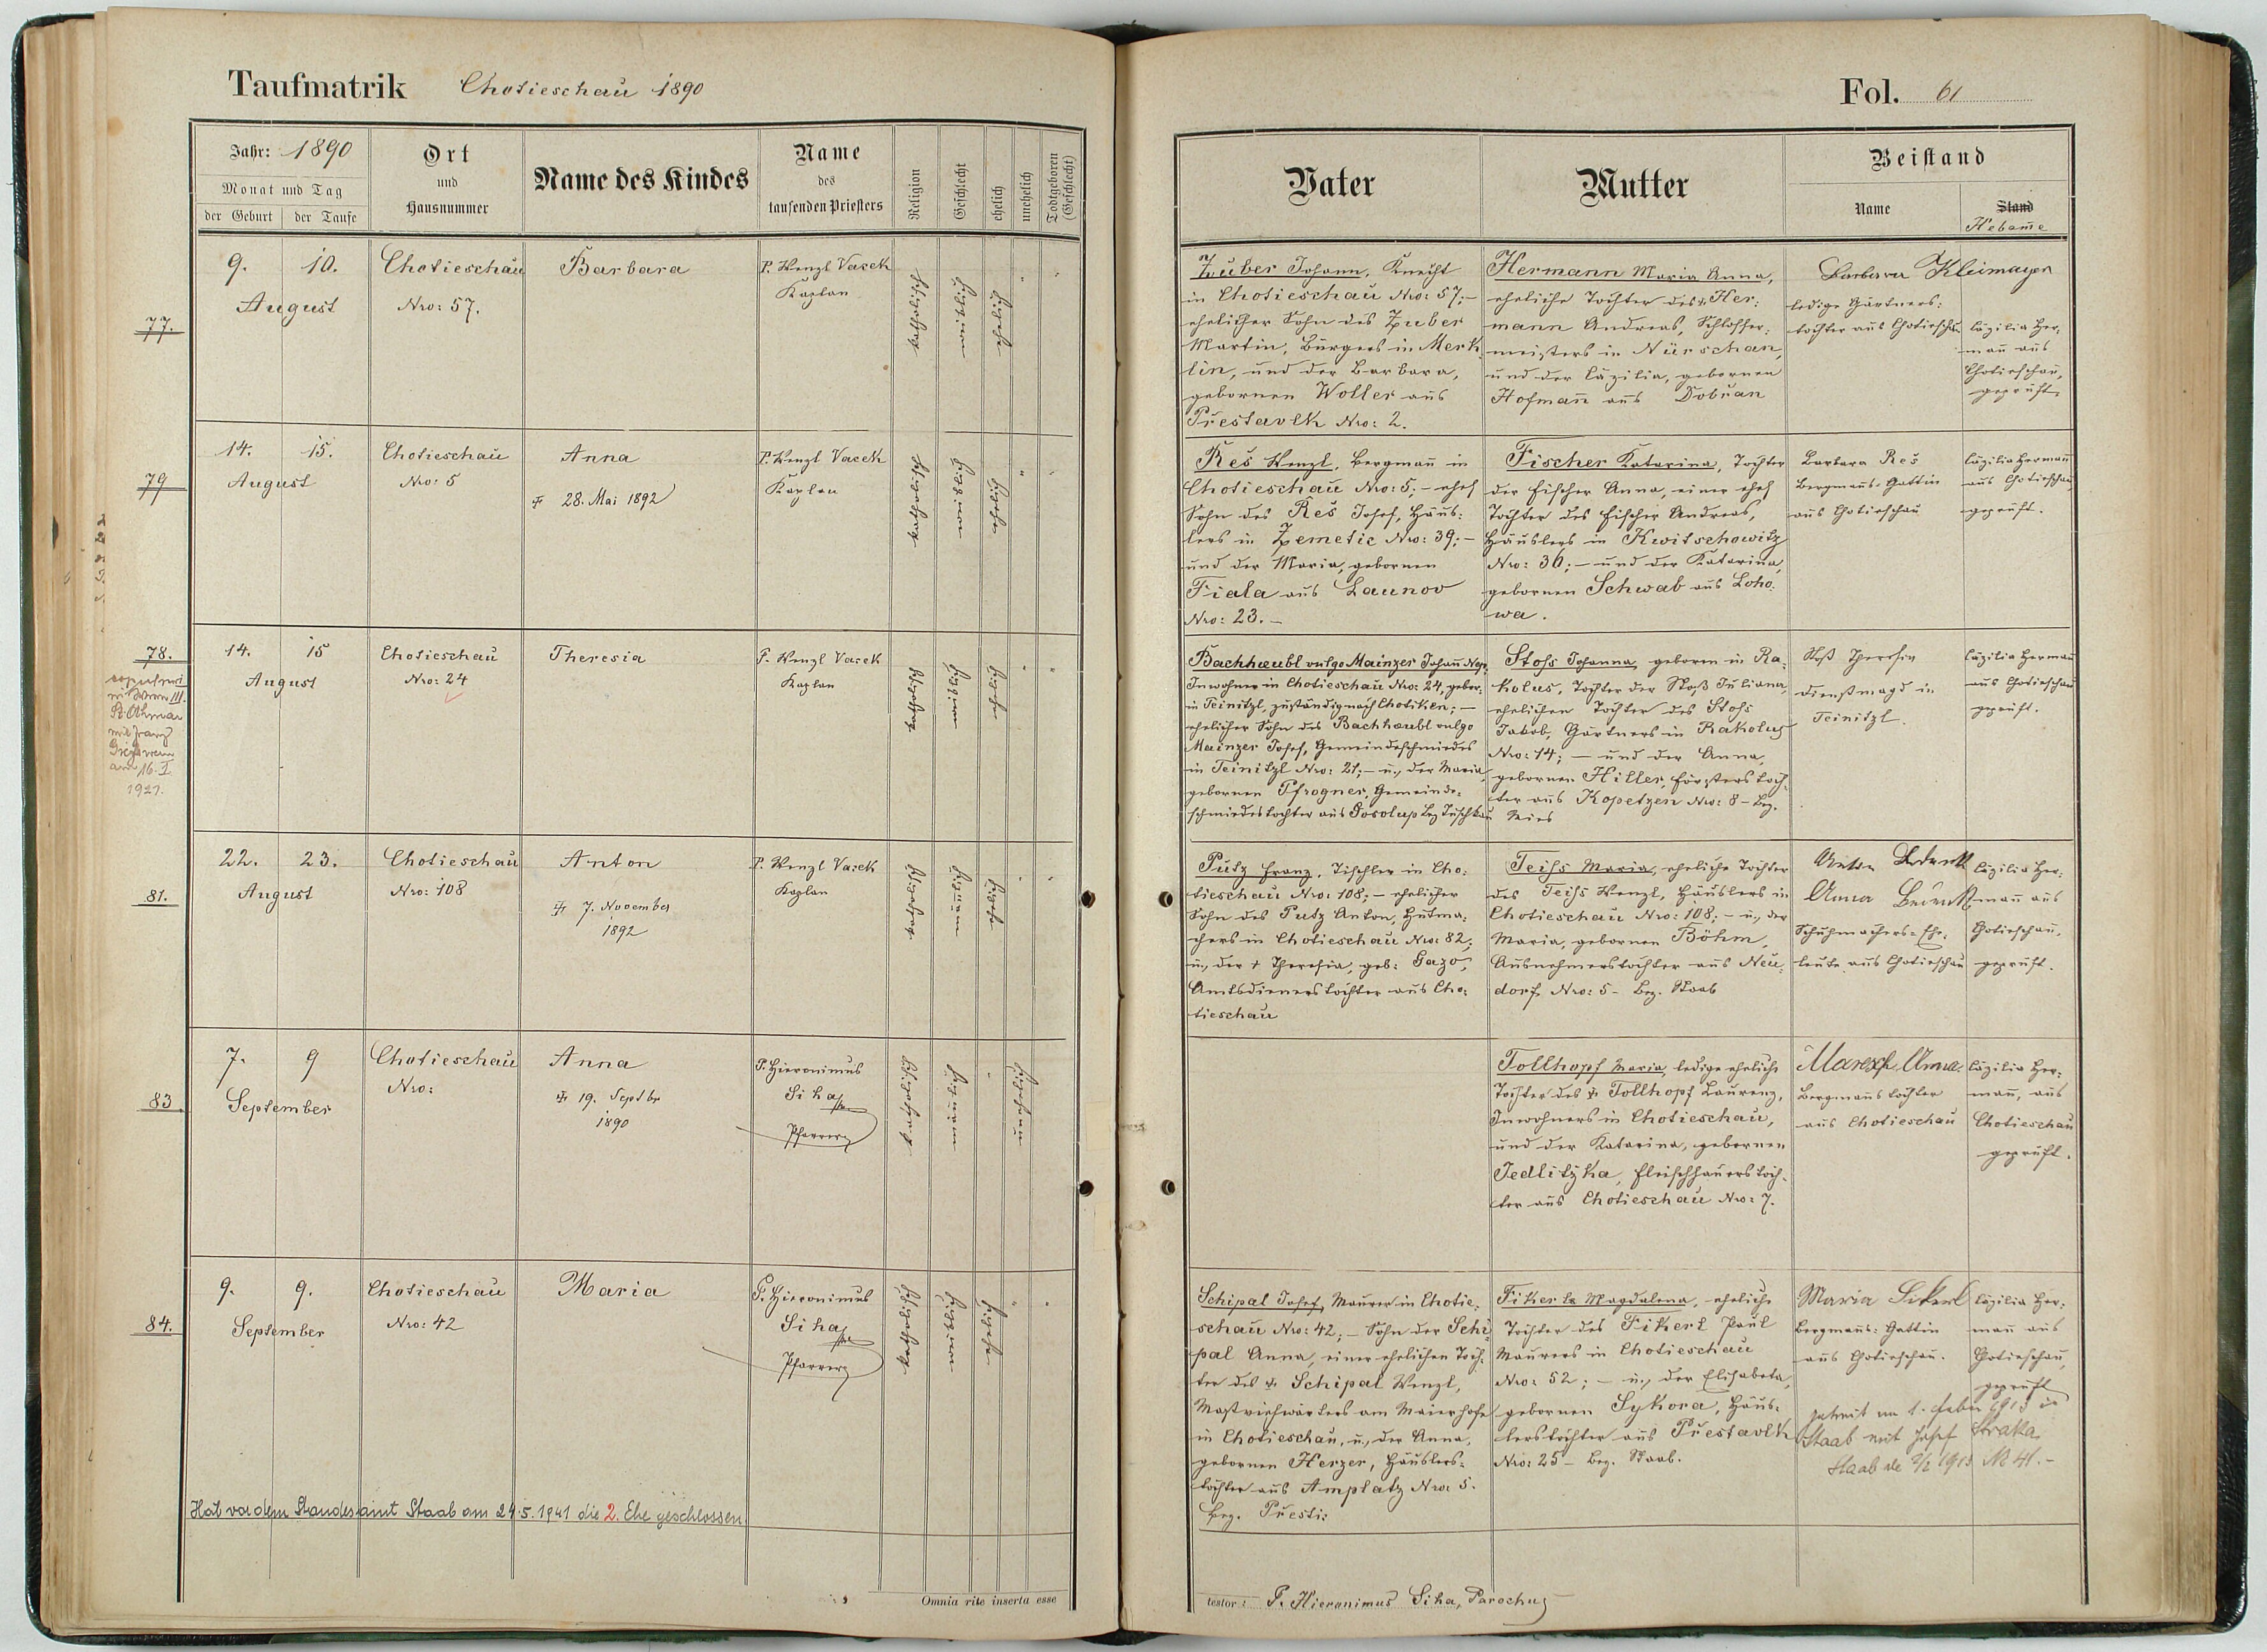 Taufmatrik Chotieschau 1890
Jahr: 1890
Monat und Tag
der Geburt
der Taufe
Ort
und
Hausnummer
Name des Kindes
Name
des
taufenden Priesters
Religion
Geschlecht
ehelich
unehelich
Todtgeboren
(Geschlecht)
77.
9.
10.
August
Chotieschau
Nro: 57.
Barbara
P. Wenzl Vacek
Kaplan
katholisch
weiblich
ehelich
79
14.
15.
August
Chotieschau
Nro: 5
Anna
† 28. Mai 1892
P. Wenzl Vacek
Kaplan
katholisch
weiblich
ehelich
78.
14.
15
August
Chotieschau
Nro: 24
Theresia
P. Wenzl Vacek
Kaplan
katholisch
weiblich
ehelich
in Wien III.
St. Othmar
mit Franz
am 16. I.
1921.
81.
22.
23.
August
Chotieschau
Nro: 108
Anton
† 7. November
1892
P. Wenzl Vacek
Kaplan
katholisch
männlich
ehelich
83
7.
9
September
Chotieschau
Nro:
Anna
† 19. Septbr
1890
P. Hieronimus
Siha
Pfarrer
katholisch
weiblich
unehelich
84.
9.
9.
September
Chotieschau
Nro: 42
Maria
P. Hieronimus
Siha
Pfarrer
katholisch
weiblich
ehelich
Hat vor dem Standesamt Staab am 24.5.1941 die 2. Ehe geschlossen.
Omnia rite inserta esse
Fol. 61
Vater
Mutter
Beistand
Name
Stand
Hebam̄e
Zuber Johann, Knecht
in Chotieschau Nro: 57;-
ehelicher Sohn des Zuber
Martin, Bürgers in Merk
lin, und der Barbara,
gebornen Woller aus
Přestavlk Nro: 2.
Hermann Maria Anna,
eheliche Tochter des † Her:
mann Andreas, Schlosser:
meisters in Nürschan,
und der Cäzilia, gebornen
Hofman̄ aus Dobřan
Barbara Kleimayer
ledige Gärtners:
tochter aus Chotieschau
Cäzilia Her:
man̄ aus
Chotieschau,
geprüft.
Reš Wenzl, Bergman̄ in
Chotieschau Nro: 5;- ehel
Sohn des Reš Josef, Häus:
lers in Zemetic Nro: 39;-
und der Maria, gebornen
Fiala aus Launov
Nro: 23.-
Fischer Katarina, Tochter
der Fischer Anna, einer ehel
Tochter des Fischer Andreas,
Häuslers in Kwitschowitz
Nro: 36;- und der Katarina,
gebornen Schwab aus Loho:
wa.
Barbara Reš
Bergman̄s-Gattin
aus Chotieschau
Cäzilia Herman̄
aus Chotieschau
geprüft.
Bachheubl vulgo Mainzer Johan̄ Nep.
Inwohner in Chotieschau Nro: 24, gebor:
in Teinitzl, zuständig nach Chotiken;-
ehelicher Sohn des Bachheubl vulgo
Mainzer Josef, Gemeindeschmiedes
in Teinitzl Nro: 21;- u., der Maria,
gebornen Pfrogner, Gemeinde:
schmiedestochter aus Gosolup Bez Tuschkau
Stohs Johanna, geboren in Ra:
kolus, Tochter der Stoß Juliana,
ehelichen Tochter des Stohs
Jakob, Gärtners in Rakolus
Nro: 14;- und der Anna,
gebornen Hiller, Försterstoch:
ter aus Kopetzen Nro: 8 - Bez.
Mies
Stoß Theresia
Dienstmagd in
Teinitzl.
Cäzilia Herman̄
aus Chotieschau
geprüft.
Putz Franz, Tischler in Cho:
tieschau Nro: 108;- ehelicher
Sohn des Putz Anton, Hutma:
chers in Chotieschau Nro: 82;
u., der † Theresia, geb: Gazo,
Amtsdienerstochter aus Cho:
tieschau
Teihs Maria, eheliche Tochter
des Teihs Wenzl, Häuslers in
Chotieschau Nro: 108;- u., der
Maria, gebornen Böhm,
Ausnehmerstochter aus Neu:
dorf Nro: 5 - Bez. Staab
Anton
Anna
Schuhmachers-Ehe:
leute aus Chotieschau
Cäzilia Her:
man̄ aus
Chotieschau,
geprüft.
Tollhopf Maria, ledige eheliche
Tochter des † Tollhopf Laurenz,
Inwohners in Chotieschau,
und der Katarina, gebornen
Jedlitzka, Fleischhauerstoch:
ter aus Chotieschau Nro: 7.
Maresch Anna
Bergman̄stochter
aus Chotieschau
Cäzilia Her:
man̄, aus
Chotieschau
geprüft.
Schipal Josef, Maurer in Chotie:
schau Nro: 42;- Sohn der Schi:
pal Anna, einer ehelichen Toch:
ter des † Schipal Wenzl,
Mastviehwärters am Maierhofe
in Chotieschau, u., der Anna,
gebornen Herzer, Häuslers:
tochter aus Amplatz Nro: 5.
Bez. Přesti:
Fikerle Magdalena, eheliche
Tochter des Fikerl Paul
Maurers in Chotieschau
Nro: 52;- u., der Elisabeta,
gebornen Sykora, Häus:
lerstochter aus Přestavlk
Nro: 25 - Bez. Staab.
Maria
Bergman̄s: Gattin
aus Chotieschau.
Cäzilia Her:
man̄ aus
Chotieschau,
geprüft
getraut am 1. 1913 in
Staab mit Josef Straka
Staab 1913 41.-
testor: P. Hieronimus Siha, Parochus